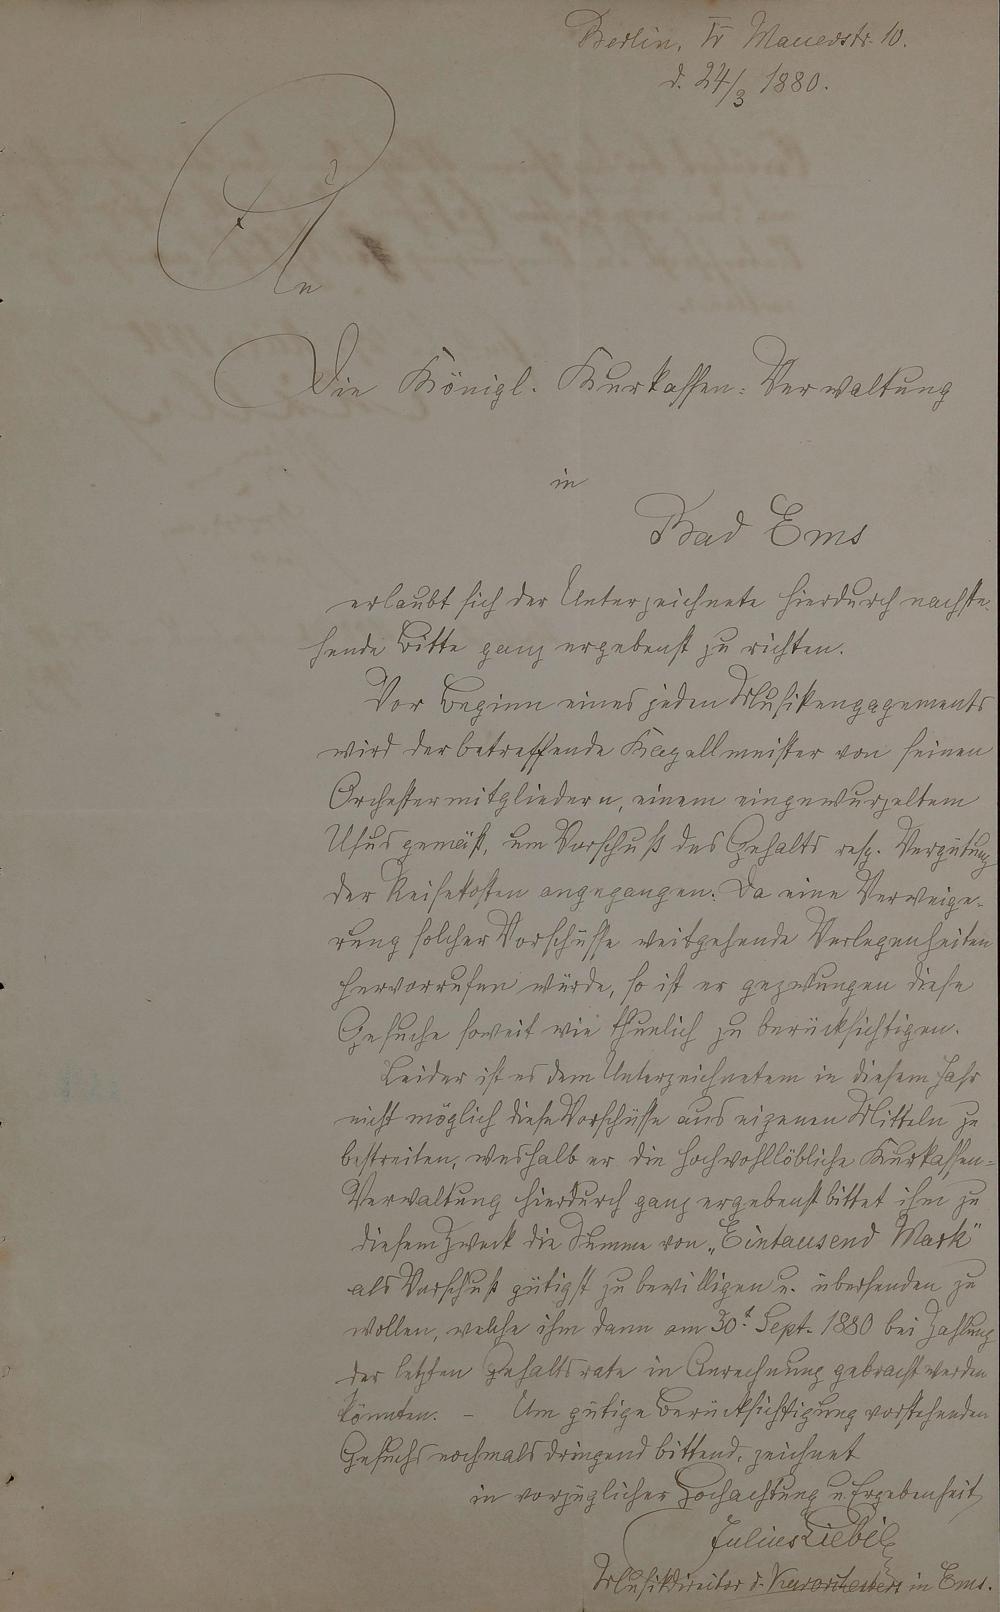 Berlin, W Mauerstr. 10.
d. 24/3 1880.
An
Die Königl. Kurkassen-Verwaltung
in
Bad Ems
erlaubt sich der Unterzeichnete hierdurch nachste-
hende Bitte ganz ergebenst zu richten.
Vor Beginn eines jeden Musikengagements
wird der betreffende Kapellmeister von seinen
Orchestermitgliedern, einem eingewurzeltem
Usus gemäß, um Vorschuß des Gehalts resp. Vergütung
der Reisekosten angegangen. Da eine Verweige-
rung solcher Vorschüsse weitgehende Verlegenheiten
hervorrufen würde, so ist er gezwungen diese
Gesuche soweit wie thunlich zu berücksichtigen.
Leider ist es dem Unterzeichnetem in diesem Jahr
nicht möglich diese Vorschüsse aus eigenen Mitteln zu
bestreiten, weshalb er die hochwohllöbliche Kurkassen-
Verwaltung hierdurch ganz ergebenst bittet ihm zu
diesem Zweck die Summe von „Eintausend Mark"
als Vorschuß gütigst zu bewilligen u. übersenden zu
wollen, welche ihm dann am 30t. Sept. 1880 bei Zahlung
der letzten Gehaltsrate in Anrechnung gebracht werden
könnten. – Um gütige Berücksichtigung vorstehenden
Gesuchs nochmals dringend bittend, zeichnet
in vorzüglicher Hochachtung u Ergebenheit
Julius Liebig
Musikdirector d. Kurorchesters in Ems.